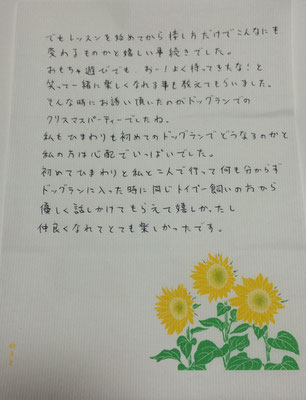 でもレッスンを始めてから接し方だけでこんなにも
変わるものかと嬉しい事続きでした。
おもちゃ遊びでも、おー！よく待ってきたな！と
笑って一緒に楽しくなれる事も教えてもらいました。
そんな時にお誘い頂いたのがドッグランでの
クリスマスパーティーでしたね。
私もひまわりも初めてのドッグランでどうなるのかと
私の方は心配でいっぱいでした。
初めてひまわりと私と二人で行って何も分からず
ドッグランに入った時に同じトイプー飼いの方から
優しく話しかけてもらえて嬉しかったし
仲良くなれてとても楽しかったです。